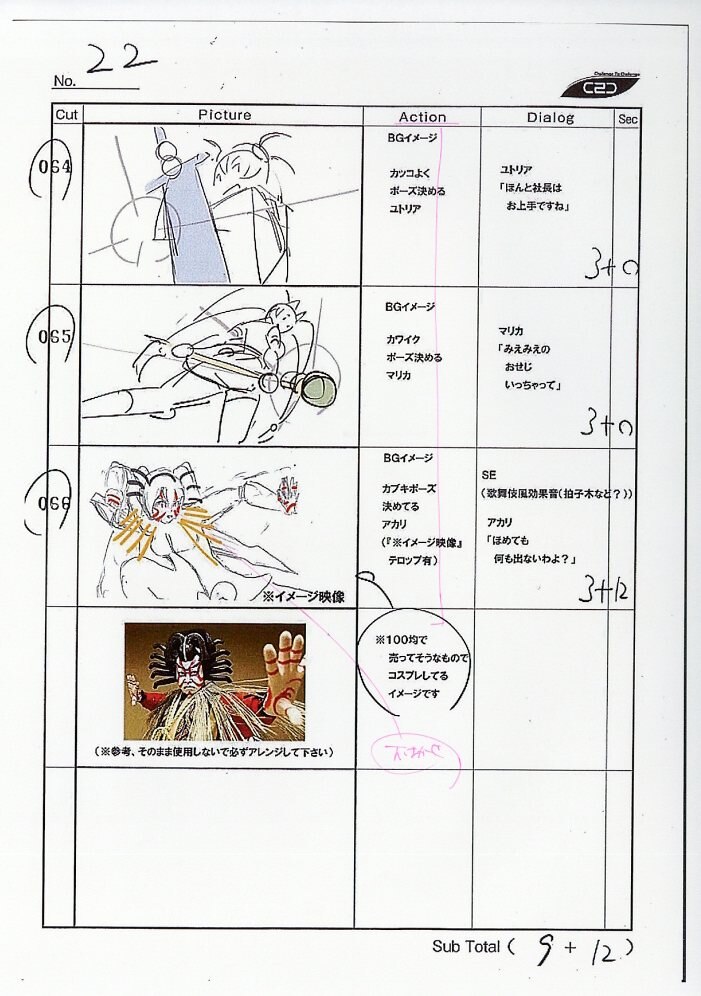 No. 22
Challenge To Challenge
C2C
Cut
Picture
Action
Dialog
Sec
064
BGイメージ
カッコよく
ポーズ決める
ユトリア
ユトリア
「ほんと社長は
お上手ですね」
3+0
065
BGイメージ
カワイク
ポーズ決める
マリカ
マリカ
「みえみえの
おせじ
いっちゃって」
3+0
066
※イメージ映像
BGイメージ
カブキポーズ
決めてる
アカリ
(『※イメージ映像』
テロップ有)
SE
(歌舞伎風効果音(拍子木など?))
アカリ
「ほめても
何も出ないわよ?」
3+12
(※参考、そのまま使用しないで必ずアレンジして下さい)
※100均で
売ってそうなもので
コスプレしてる
イメージです
Sub Total ( 9 + 12 )